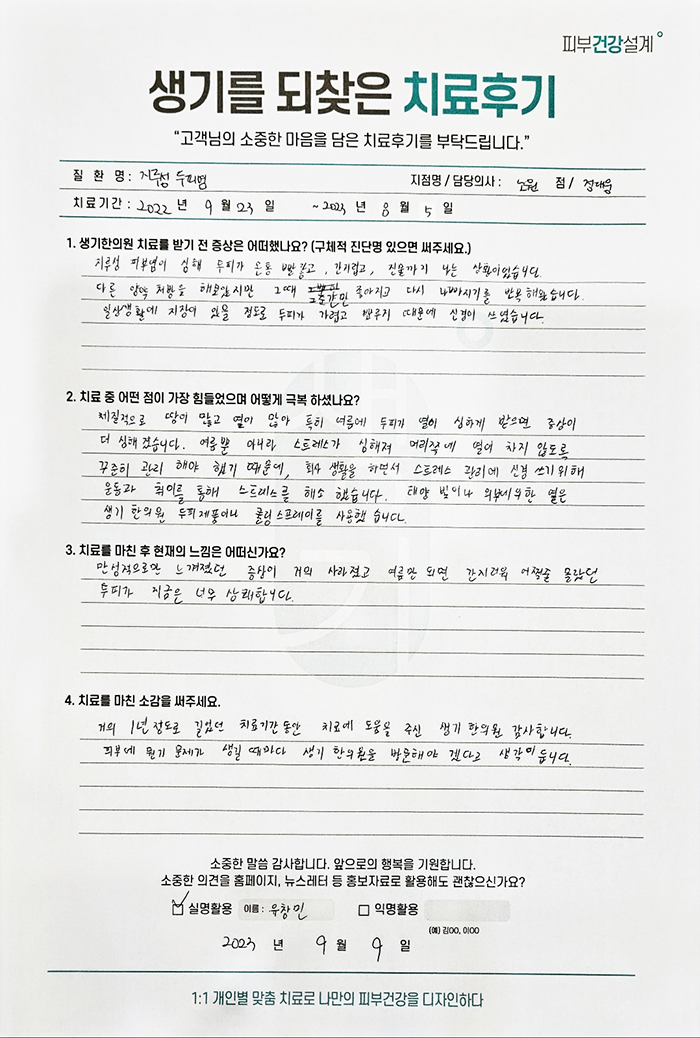 피부건강설계
생기를 되찾은 치료후기
“고객님의 소중한 마음을 담은 치료후기를 부탁드립니다.”
질 환 명 : 지루성 두피염 지점명 / 담당의사 : 노원 점 / 정대웅
치료기간 : 2022 년 9 월 23 일 ~ 2023 년 8 월 5 일
1. 생기한의원 치료를 받기 전 증상은 어떠했나요? (구체적 진단명 있으면 써주세요.)
지루성 피부염이 심해 두피가 온통 빨갛고, 간지럽고, 진물까지 나는 상황이었습니다.
다른 양약 처방을 해보았지만 그때 그순간만 좋아지고 다시 나빠지기를 반복해왔습니다.
일상생활에 지장이 있을 정도로 두피가 가렵고 방주기 때문에 신경이 쓰였습니다.
2. 치료 중 어떤 점이 가장 힘들었으며 어떻게 극복 하셨나요?
체질적으로 땀이 많고 열이 많아 특히 여름에 두피가 열이 심하게 받으면 증상이
더 심해 졌습니다. 여름뿐 아니라 스트레스가 심해져 머리쪽에 열이 차지 않도록
꾸준히 관리 해야 했기 때문에, 회사 생활을 하면서 스트레스 관리에 신경 쓰기 위해
운동과 취미를 통해 스트레스를 해소 했습니다. 태양 빛이나 외부에 의한 열은
생기 한의원 두피제품이나 쿨링스프레이를 사용했 습니다.
3. 치료를 마친 후 현재의 느낌은 어떠신가요?
만성적으로만 느껴졌던 증상이 거의 사라졌고 여름만 되면 간지러워 어쩔줄 몰랐던
두피가 지금은 너무 상쾌합니다.
4. 치료를 마친 소감을 써주세요.
거의 1년 정도로 길었던 치료기간 동안 치료에 도움을 주신 생기 한의원 감사합니다.
피부에 뭔가 문제가 생길 때마다 생기 한의원을 방문해야 겠다고 생각이 듭니다.
소중한 말씀 감사합니다. 앞으로의 행복을 기원합니다.
소중한 의견을 홈페이지, 뉴스레터 등 홍보자료로 활용해도 괜찮으신가요?
실명활용 이름 : 유창민 익명활용
(예) 김OO, 이OO
2023 년 9 월 9 일
1:1 개인별 맞춤 치료로 나만의 피부건강을 디자인하다